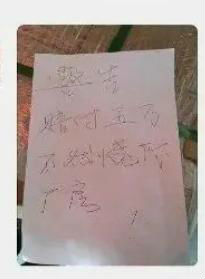 警告
赔付五万
不然烧你
厂房